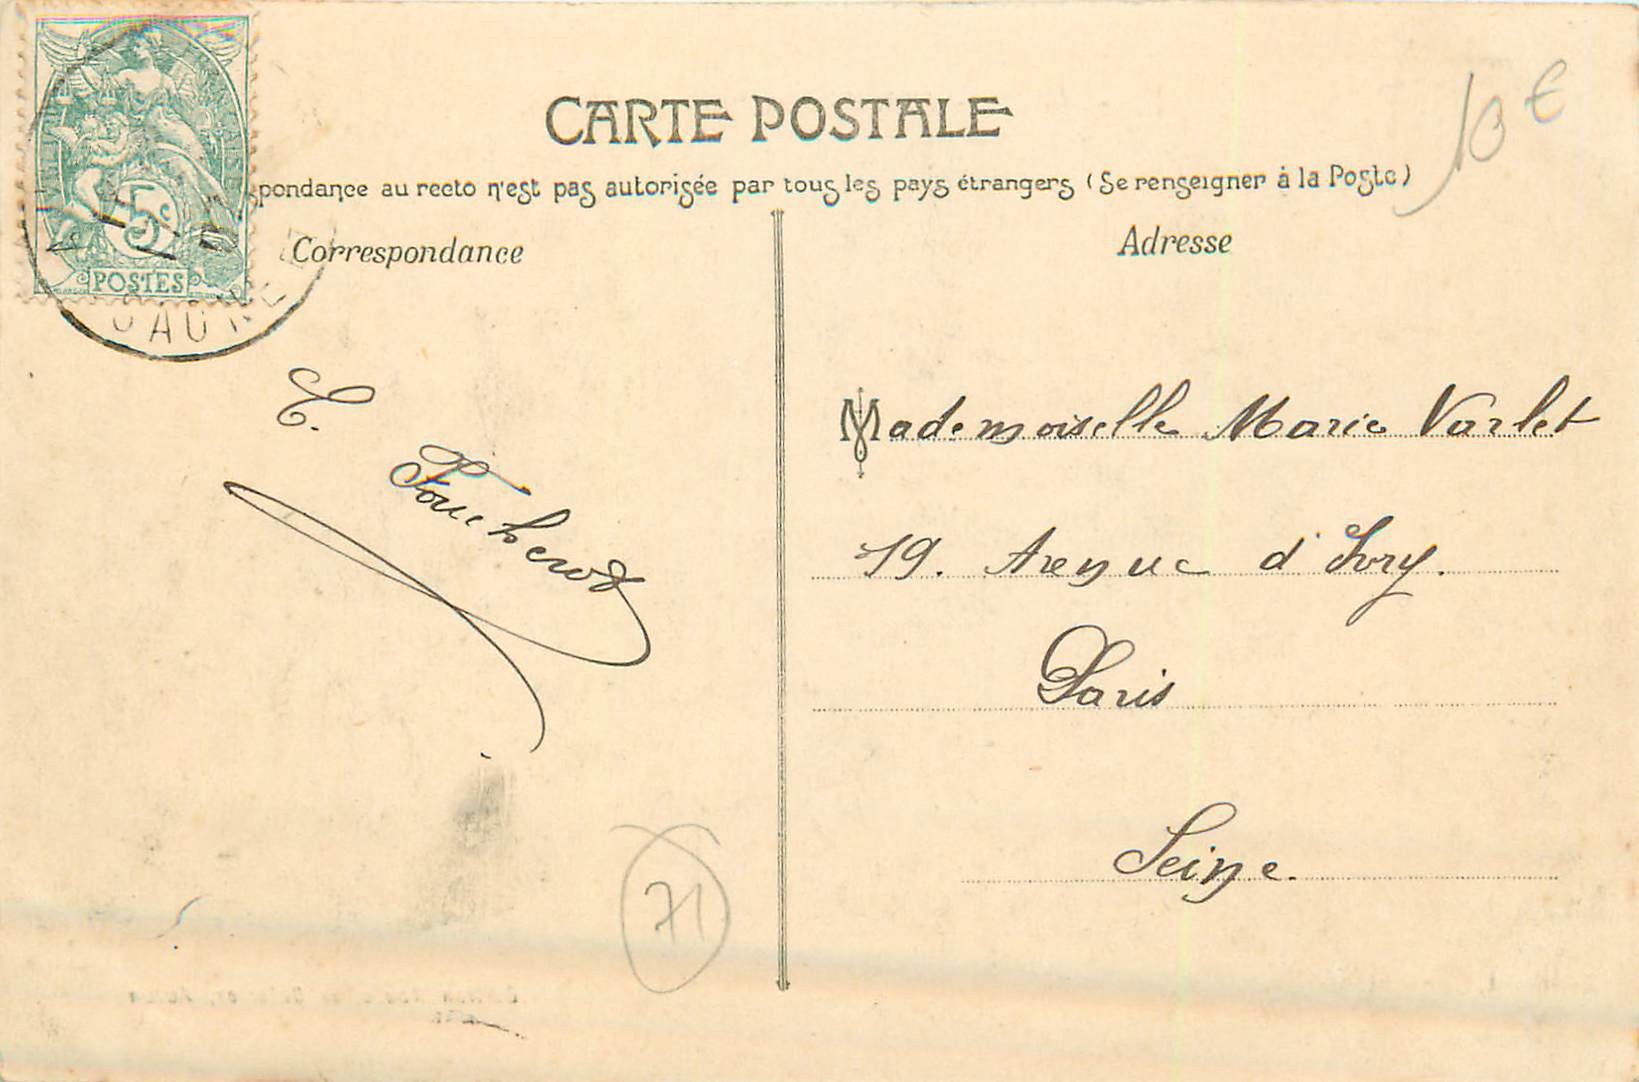 CARTE POSTALE
10 €
pondance au recto n'est pas autorisée par tous les pays étrangers (Se renseigner à la Poste)
Correspondance
Adresse
5c
POSTES
Mademoiselle Marie Varlet
19. Avenue d'Ivry.
Paris
Seine.
71